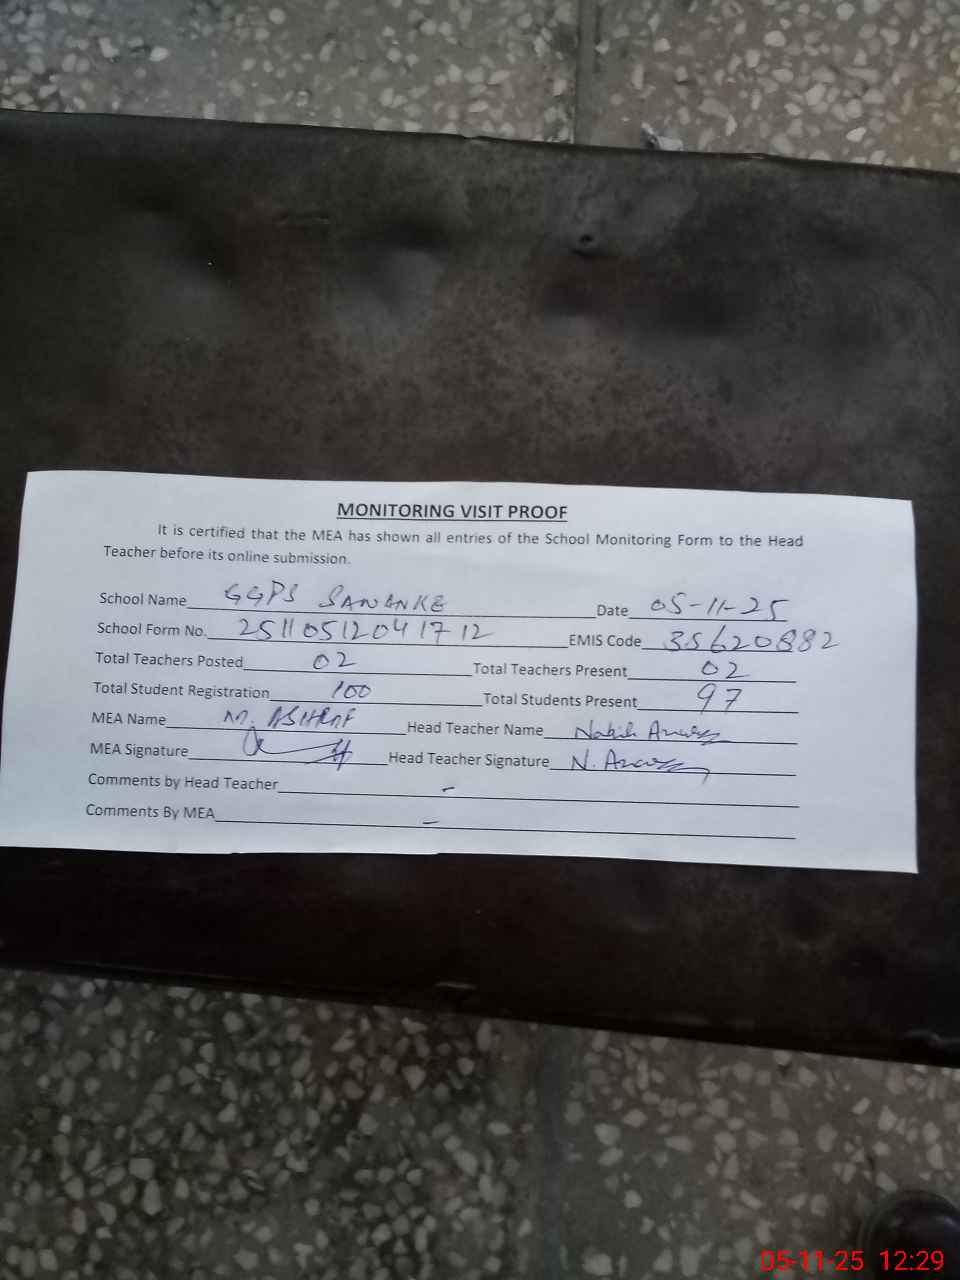 MONITORING VISIT PROOF
It is certified that the MEA has shown all entries of the School Monitoring Form to the Head
Teacher before its online submission.
School Name GGPS SANANKE Date 05-11-25
School Form No. 251105120417 12 EMIS Code 35620882
Total Teachers Posted 02 Total Teachers Present 02
Total Student Registration 100 Total Students Present 97
MEA Name M. ASHRAF Head Teacher Name
MEA Signature Head Teacher Signature N.
Comments by Head Teacher -
Comments By MEA -
05-11-25 12:29